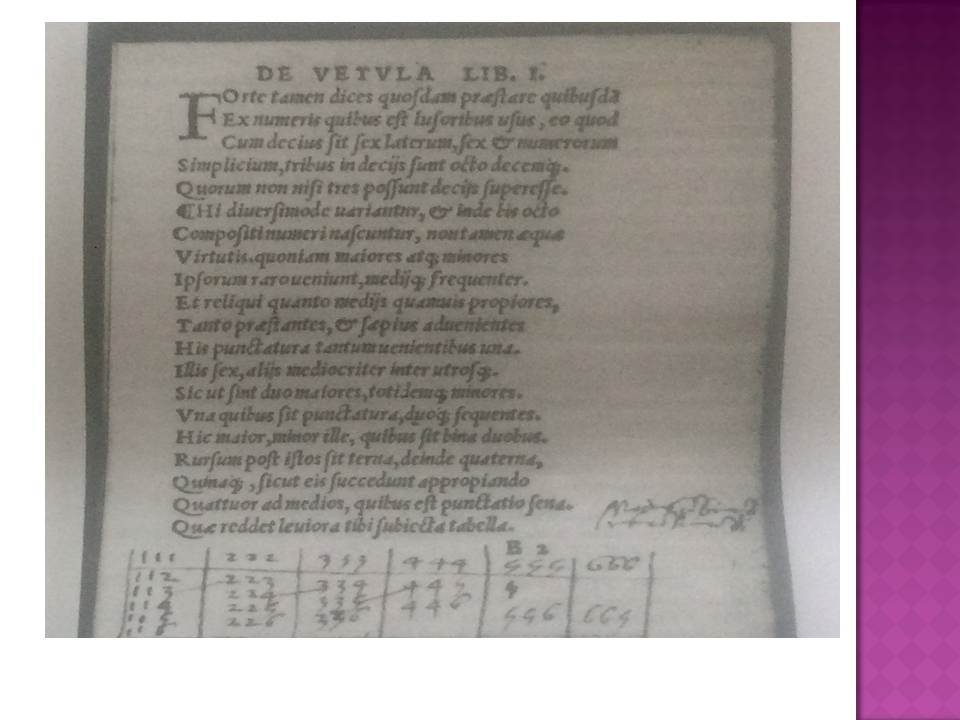 DE VETVLA LIB. I.
FOrte tamen dices quoſdam præſtare quibuſdã
Ex numeris quibus eſt luſoribus uſus, eo quod
Cum decius ſit ſex laterum, ſex & numerorum
Simplicium, tribus in decijs ſunt octo decemq;.
Quorum non niſi tres poſſunt decijs ſupereſſe.
¶Hi diuerſimode uariantur, & inde bis octo
Compoſiti numeri naſcuntur, non tamen æquæ
Virtutis, quoniam maiores atq; minores
Ipſorum raro ueniunt, medijq; frequenter.
Et reliqui quanto medijs quamuis propiores,
Tanto præſtantes, & ſæpius aduenientes
His punctatura tantum uenientibus una.
Illis ſex, alijs mediocriter inter utroſq;.
Sic ut ſint duo maiores, totidemq; minores.
Vna quibus ſit punctatura, duoq; ſequentes.
Hic maior, minor ille, quibus ſit bina duobus.
Rurſum poſt iſtos ſit terna, deinde quaterna,
Quinaq;, ſicut eis ſuccedunt appropiando
Quattuor ad medios, quibus eſt punctatio ſena.
Quæ reddet leuiora tibi ſubiecta tabella.
B 2
111 222 333 444 555 666
112 223 334 445
113 224 335 446 556 665
114 225 336
115 226
116